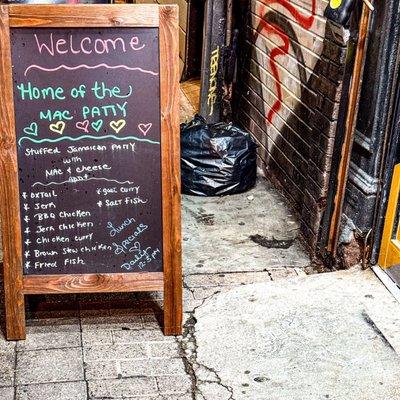 Welcome
Home of the
MAC PATTY
Stuffed Jamaican Patty
with
MAC & cheese
* OXTail
* goat curry
* Jerk
* Salt Fish
* BBQ Chicken
* Jerk chicken
* Chicken curry
* Brown Stew chicken
* Fried Fish
Lunch
Specials
Daily
12-5 PM